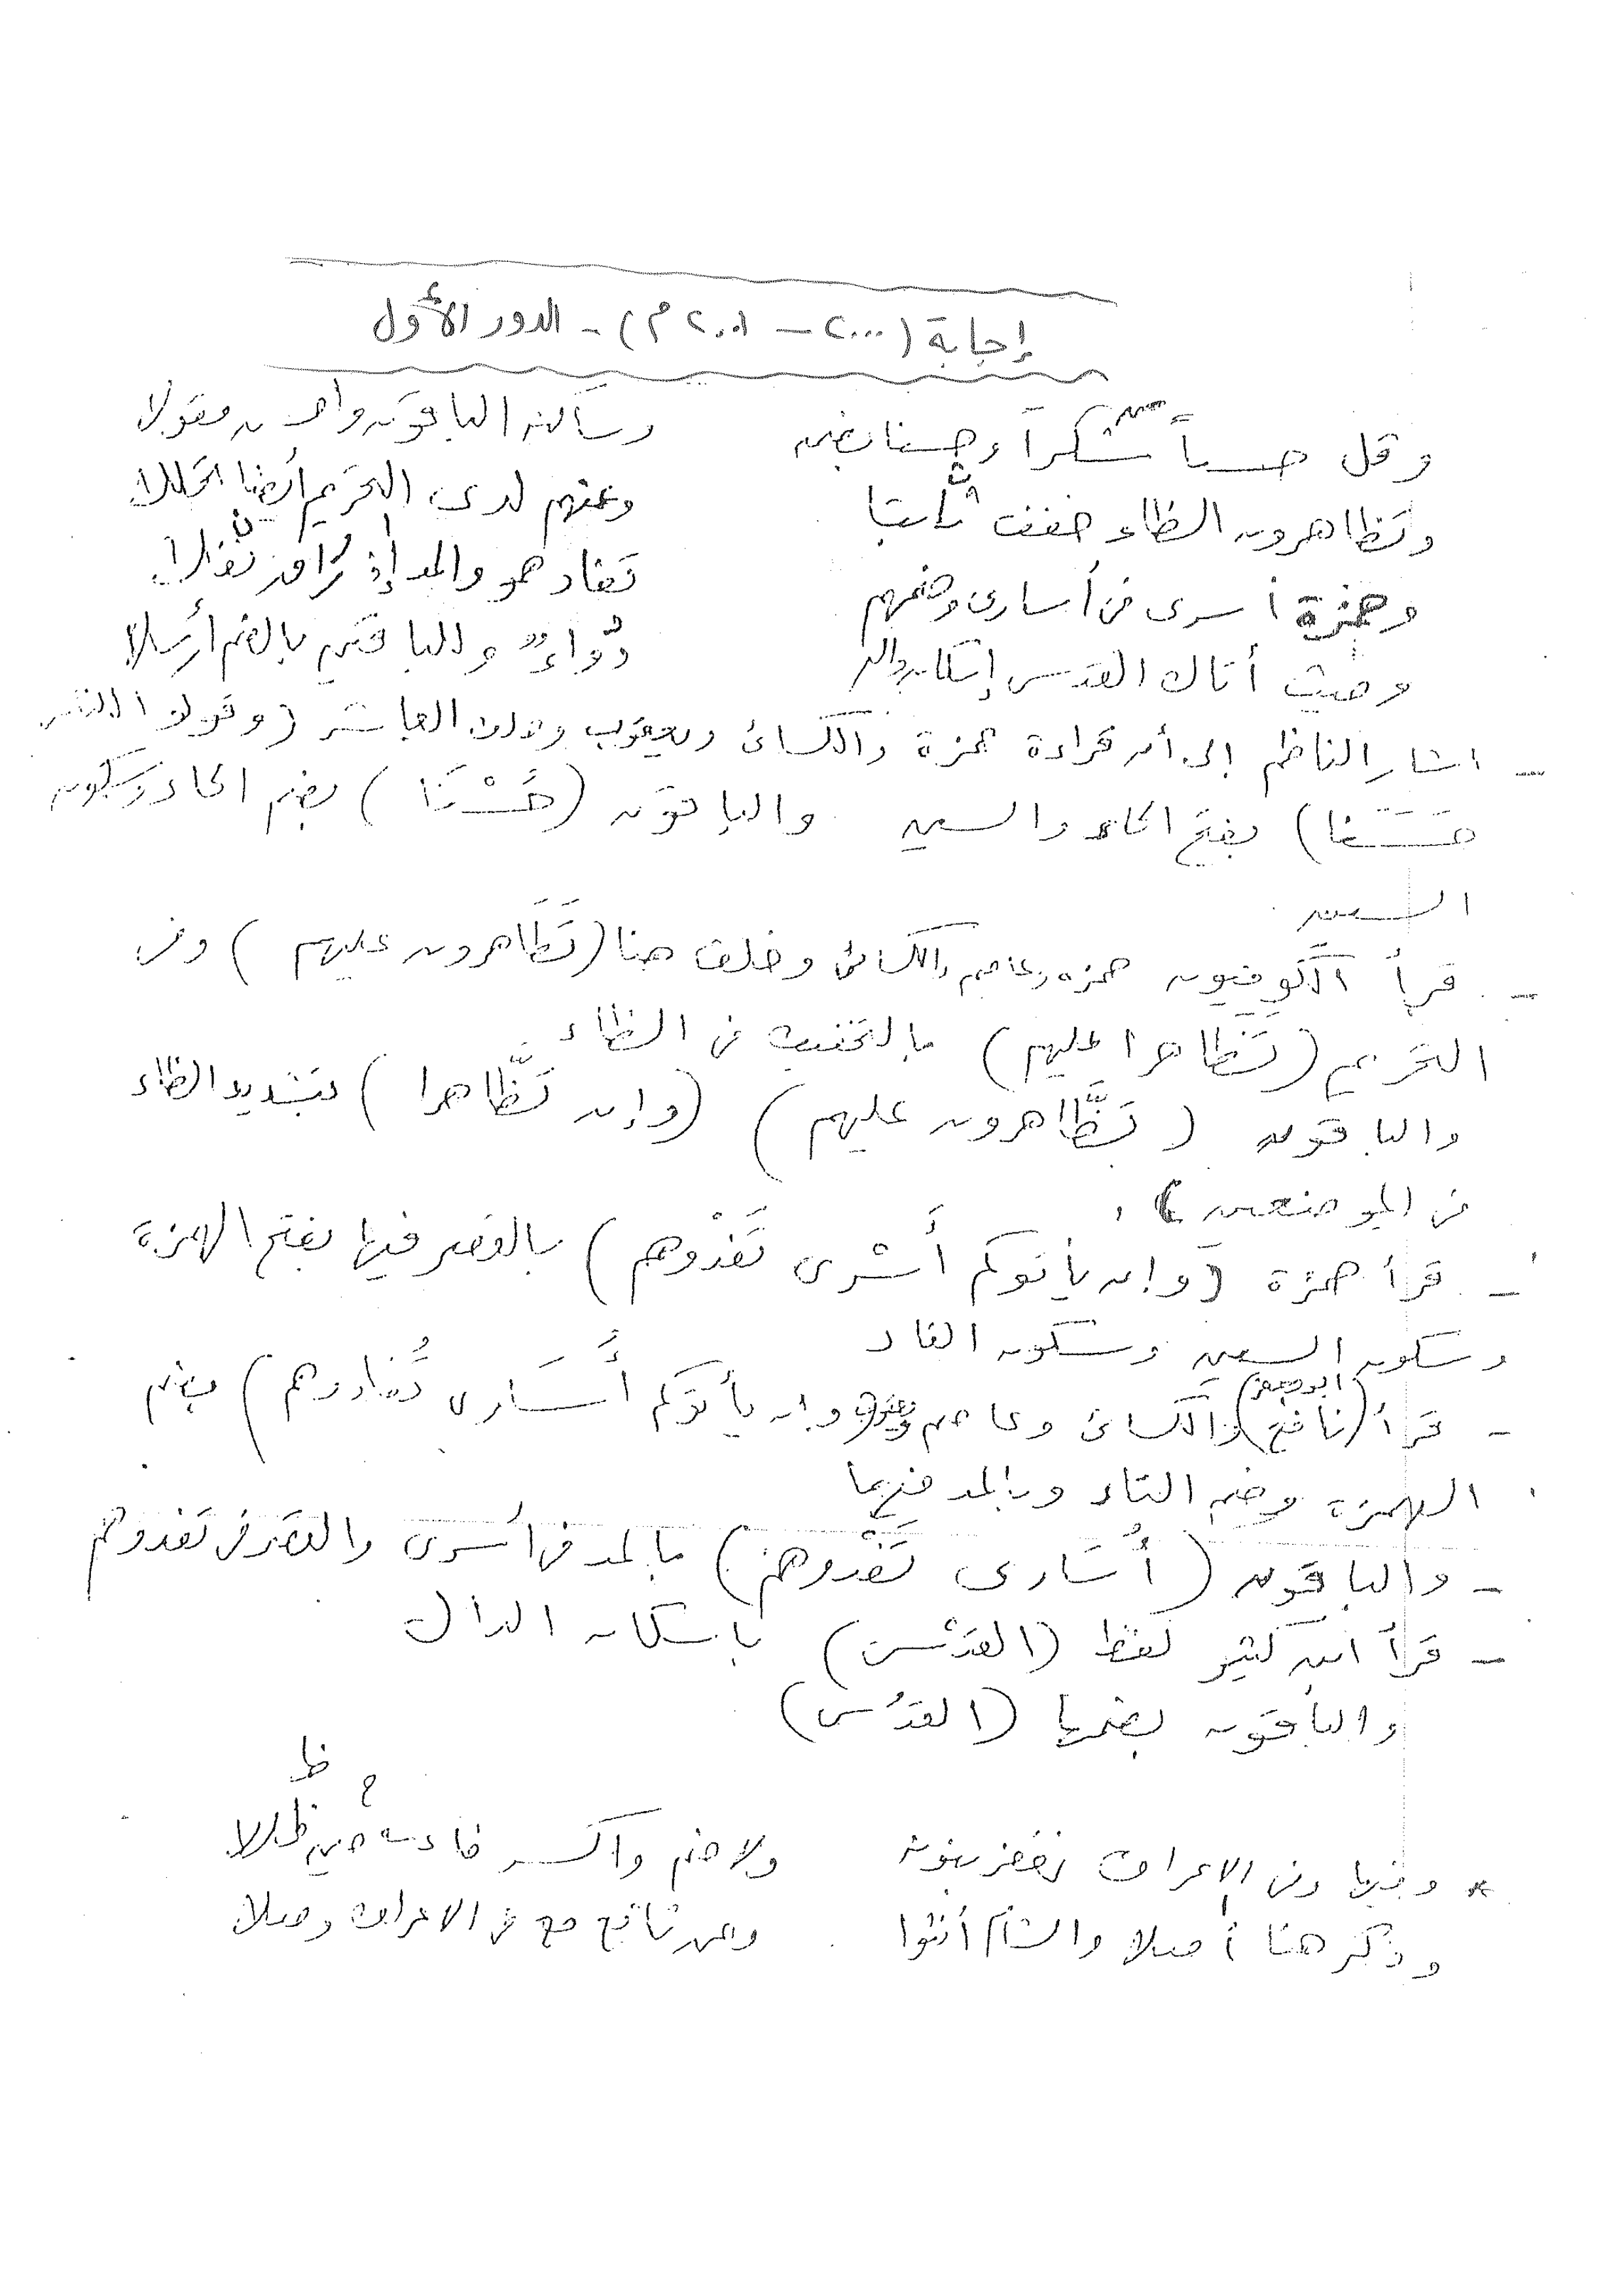 إجابة (٢٠٠٠ – ٢٠٠١ م) - الدور الأول
وقل حسناً شكراً وحسنا بضمه وساكنه الباقون واحسن مقولا
وتظاهرون الظاء خفف ثابتا وعنهم لدى التحريم أيضا تحللا
وحمزة أسرى في أسارى وضمهم تفادهمو والمد إذ راق نفلا
وحيث أتاك القدس إسكان داله دواءٌ وللباقين بالضم أرسلا
- أشار الناظم إلى أن قراءة حمزة والكسائى ويعقوب وخلف العاشر (وقولوا للناس
حَسَنَا) بفتح الحاء والسين والباقون (حُسْنَا) بضم الحاء وسكون
السين
- قرأ الكوفيون حمزه وعاصم والكسائى وخلف هنا (تَظَاهرون عليهم) وفى
التحريم (تَظاهرا عليهم) بالتخفيف فى الظاء
والباقون (تظَّاهرون عليهم) (وإن تظَّاهرا) بتشديد الظاء
فى الموضعين) .
- قرأ حمزة (وإن يأتوكم أَسْرى تَفْدوهم) بالقصر فيها بفتح الهمزة
وسكون السين وسكون الفاء
- قرأ (نافع) (أبو جعفر) والكسائى وعاصم ويعقوب (وإن يأتوكم أُسَارى تُفادوهم) بضم
الهمزة وضم التاء وبالمد فيهما
- والباقون (أُسَارى تَفْدوهم) بالمد فى أسرى والقصر فى تفدوهم
- قرأ ابن كثير لفظ (القدْس) بإسكان الدال
والباقون بضمها (القدُس)
ظا
م
* وفيها وفى الاعراف نغفر بنونه ولا ضم واكسر فاءه حين ظللا
وذكر هنا أصلا والشام أنثوا وعن نافع معه فى الاعراف وصلا